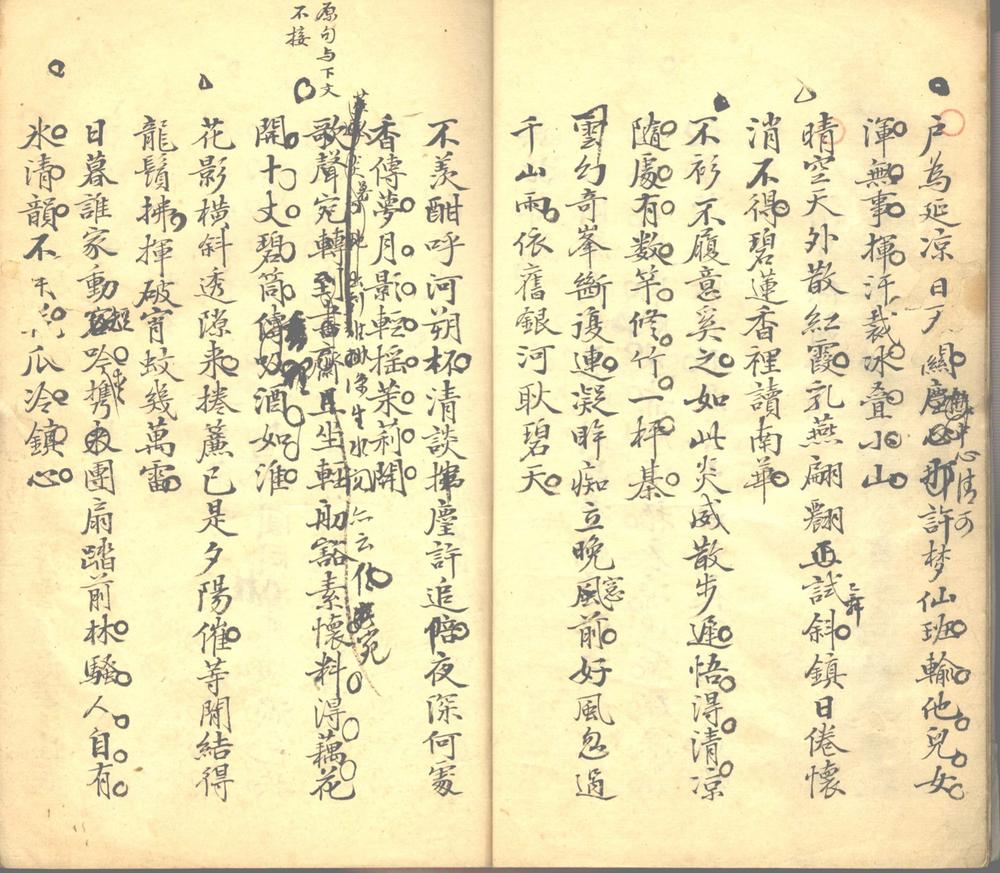 戶為延凉日夕關塵心那許梦仙班輸他兒女
渾無事揮汗裁冰叠小山
晴空天外散紅霞乳燕翩翾正試斜鎮日倦懷
消不得碧蓮香裡讀南華
不衫不履意奚之如此炎威散步遲悟得清凉
隨處有数竿修竹一枰棊
雲幻奇峯斷復連凝眸痴立晚風前好風忽過
千山雨依舊銀河耿碧天
不羨酣呼河朔杯清談揮麈許追陪夜深何處
香傳夢月影輕摇茉莉開
原句与下文
不接
歌聲宛轉到書齋且坐輕舠豁素懷料得藕花
開十丈碧筒傳吸酒如淮
花影橫斜透隙来捲簾已是夕陽催等閒結得
龍鬚拂揮破宵蚊幾萬雷
日暮誰家動吟携團扇踏前林騷人自有
氷清韻不瓜冷鎮心